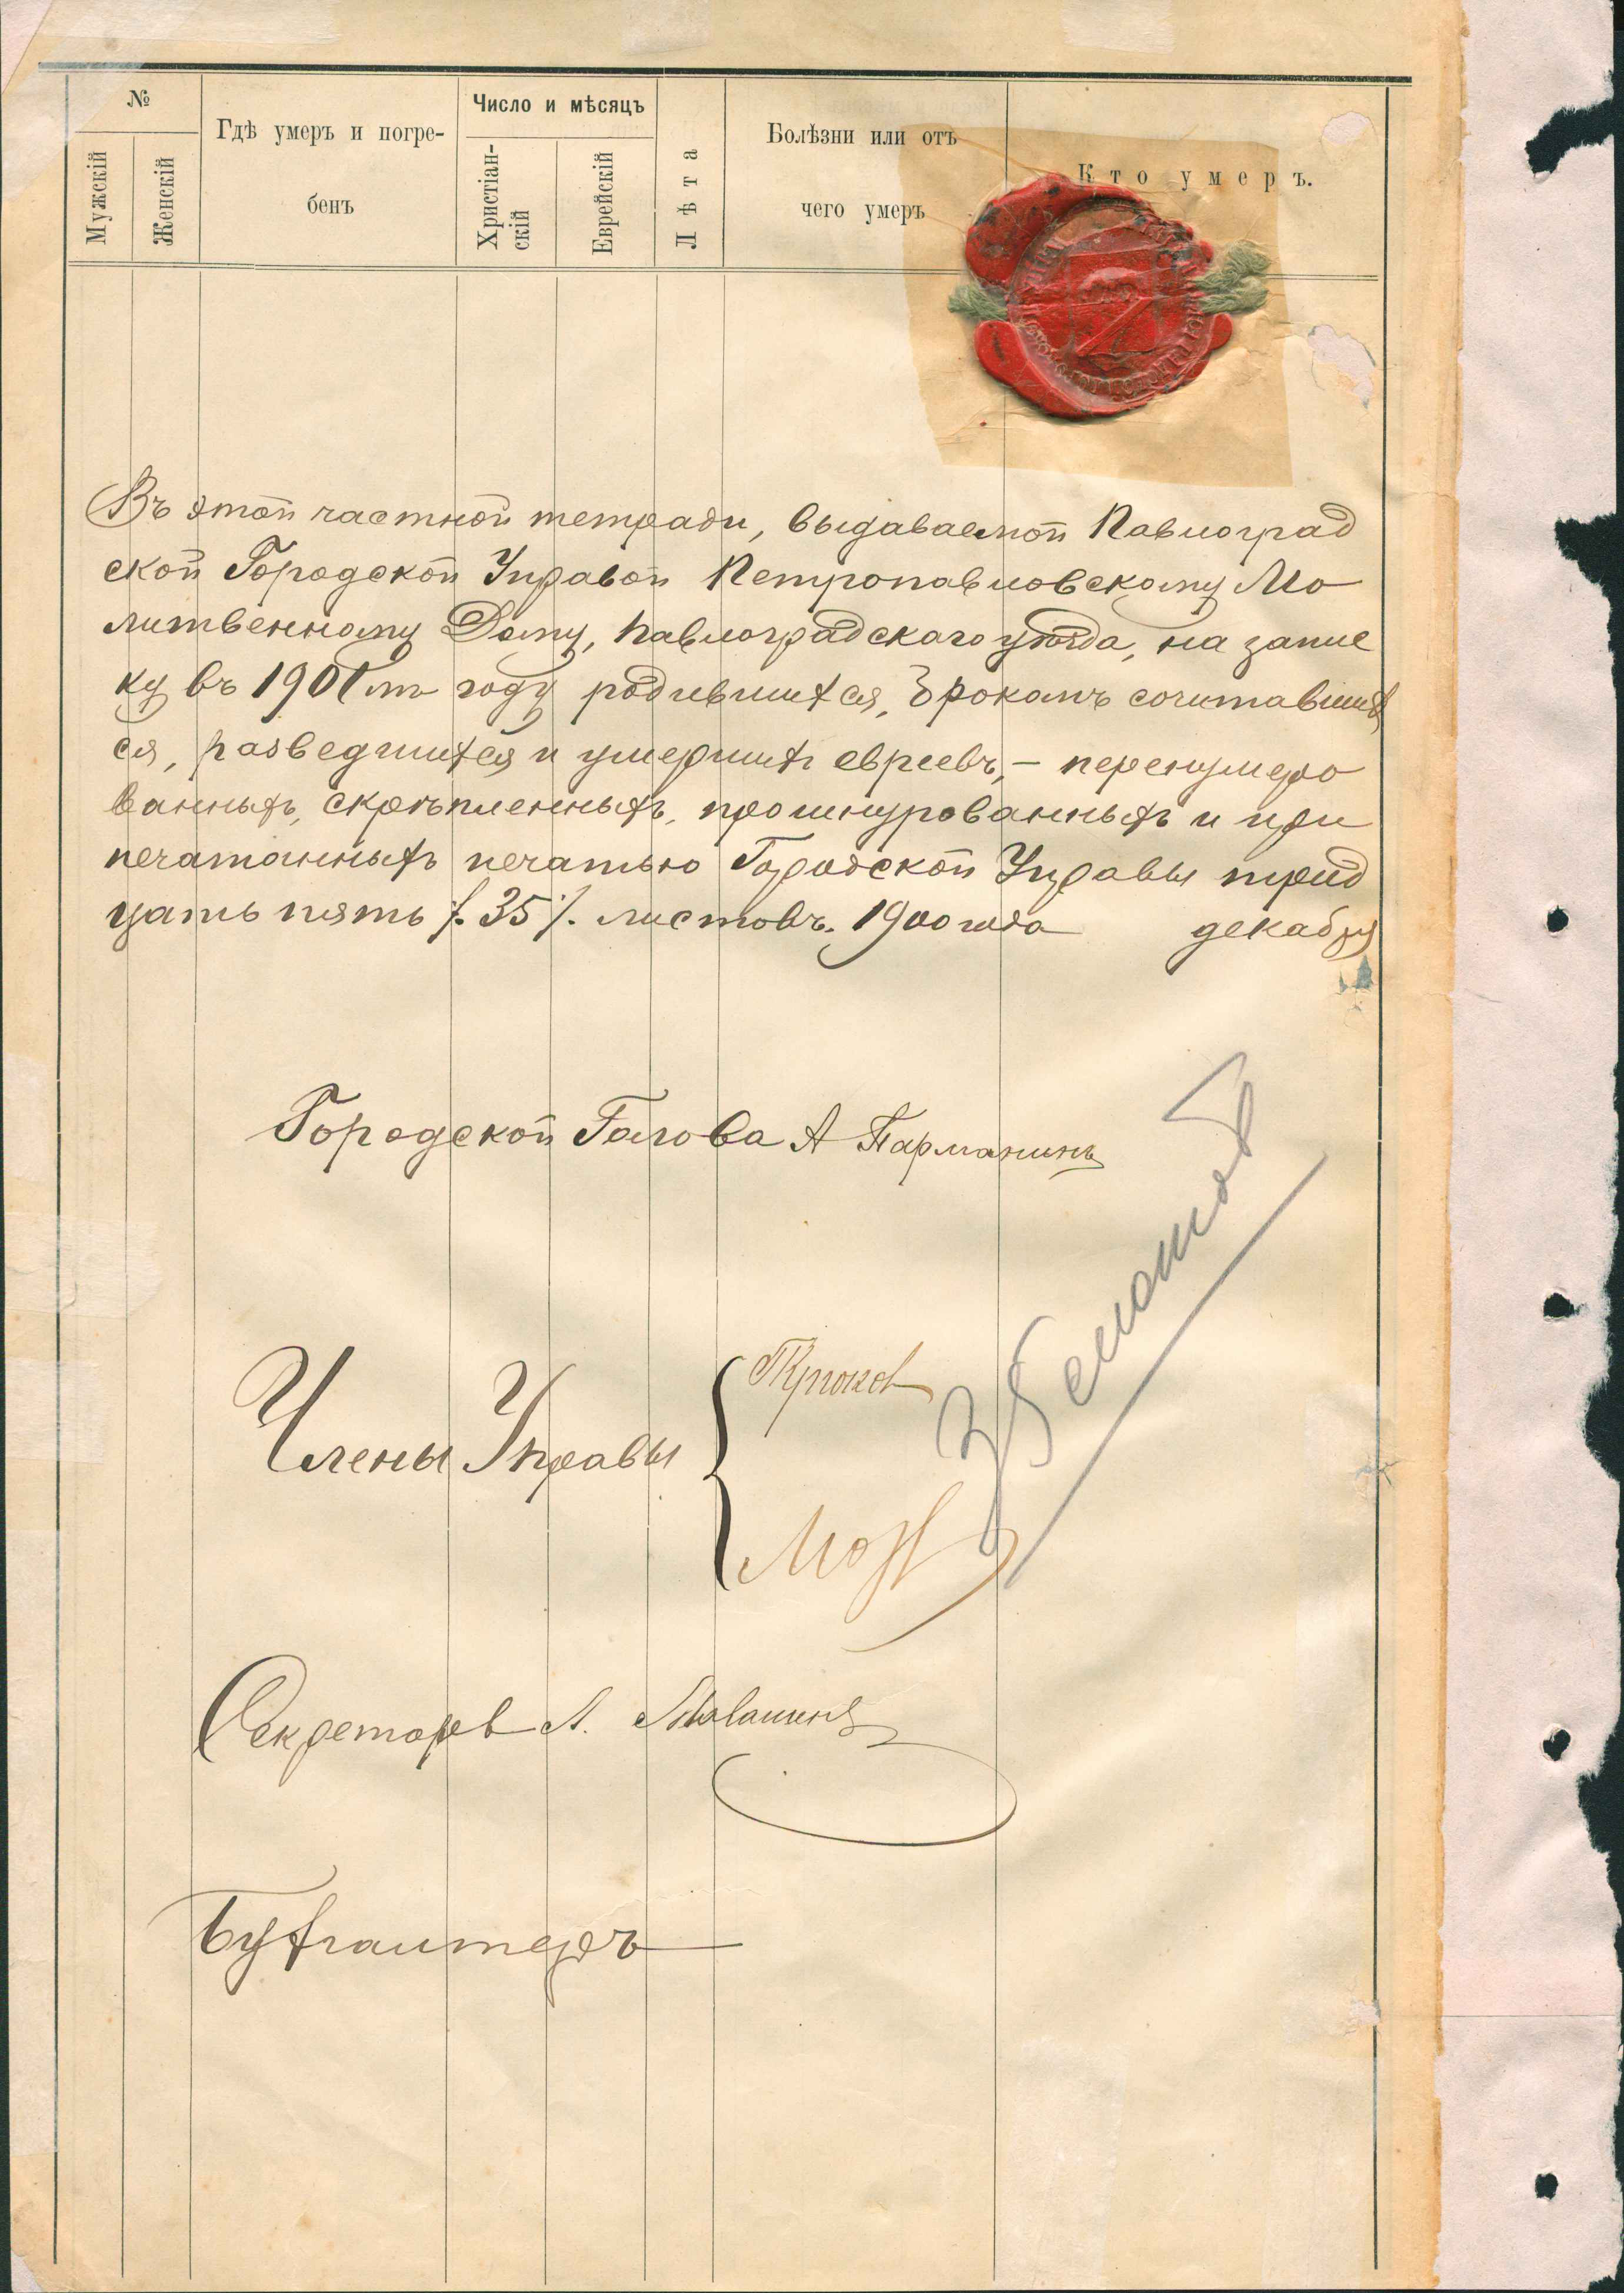 №
Мужскій
Женскій
Гдѣ умеръ и погре-
бенъ
Число и мѣсяцъ
Христіан-
скій
Еврейскій
Лѣта
Болѣзни или отъ
чего умеръ
Кто умеръ.
Въ этой частной тетради, выдаваемой Павлоград
ской Городской Управой Петропавловскому Мо
литвенному Дому, Павлоградскаго уѣзда, на запис
ку въ 1901 м году родившихся, бракомъ сочитавших
ся, разведшихся и умершихъ евреевъ, – перенумеро
ванныхъ, скрѣпленныхъ, прошнурованныхъ и при
печатанныхъ печатью Городской Управы трид
цать пять ./. 35 ./. листовъ. 1900 года декабря
Городской Голова А Парманинъ
Члены Управы
Крюков
Секретарь А.
Бухгалтеръ